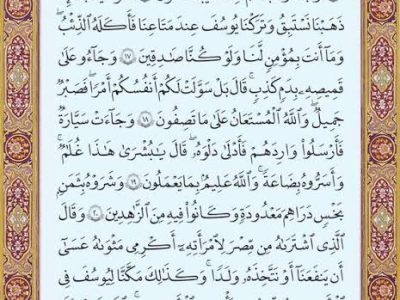 ذَهَبْنَا نَسْتَبِقُ وَتَرَكْنَا يُوسُفَ عِندَ مَتَٰعِنَا فَأَكَلَهُ ٱلذِّئْبُۖ
وَمَآ أَنتَ بِمُؤْمِنٍ لَّنَا وَلَوْ كُنَّا صَٰدِقِينَ ١٧ وَجَآءُو عَلَىٰ
قَمِيصِهِۦ بِدَمٍ كَذِبٍۚ قَالَ بَلْ سَوَّلَتْ لَكُمْ أَنفُسُكُمْ أَمْرًاۖ فَصَبْرٌ
جَمِيلٌۖ وَٱللَّهُ ٱلْمُسْتَعَانُ عَلَىٰ مَا تَصِفُونَ ١٨ وَجَآءَتْ سَيَّارَةٌ
فَأَرْسَلُوا۟ وَارِدَهُمْ فَأَدْلَىٰ دَلْوَهُۥۖ قَالَ يَٰبُشْرَىٰ هَٰذَا غُلَٰمٌۚ
وَأَسَرُّوهُ بِضَٰعَةًۚ وَٱللَّهُ عَلِيمٌۢ بِمَا يَعْمَلُونَ ١٩ وَشَرَوْهُ بِثَمَنٍۭ
بَخْسٍ دَرَٰهِمَ مَعْدُودَةٍ وَكَانُوا۟ فِيهِ مِنَ ٱلزَّٰهِدِينَ ٢٠ وَقَالَ
ٱلَّذِى ٱشْتَرَىٰهُ مِن مِّصْرَ لِٱمْرَأَتِهِۦٓ أَكْرِمِى مَثْوَىٰهُ عَسَىٰٓ
أَن يَنفَعَنَآ أَوْ نَتَّخِذَهُۥ وَلَدًاۚ وَكَذَٰلِكَ مَكَّنَّا لِيُوسُفَ فِى